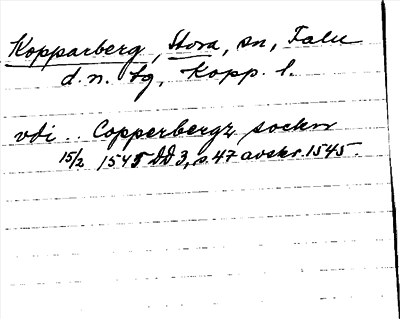 Kopparberg, Stora, sn, Falu
d. n. tg, Kopp. l.
vdi .. Copperbergz sockn
15/2 1545 DD 3, s. 47 avskr. 1545.